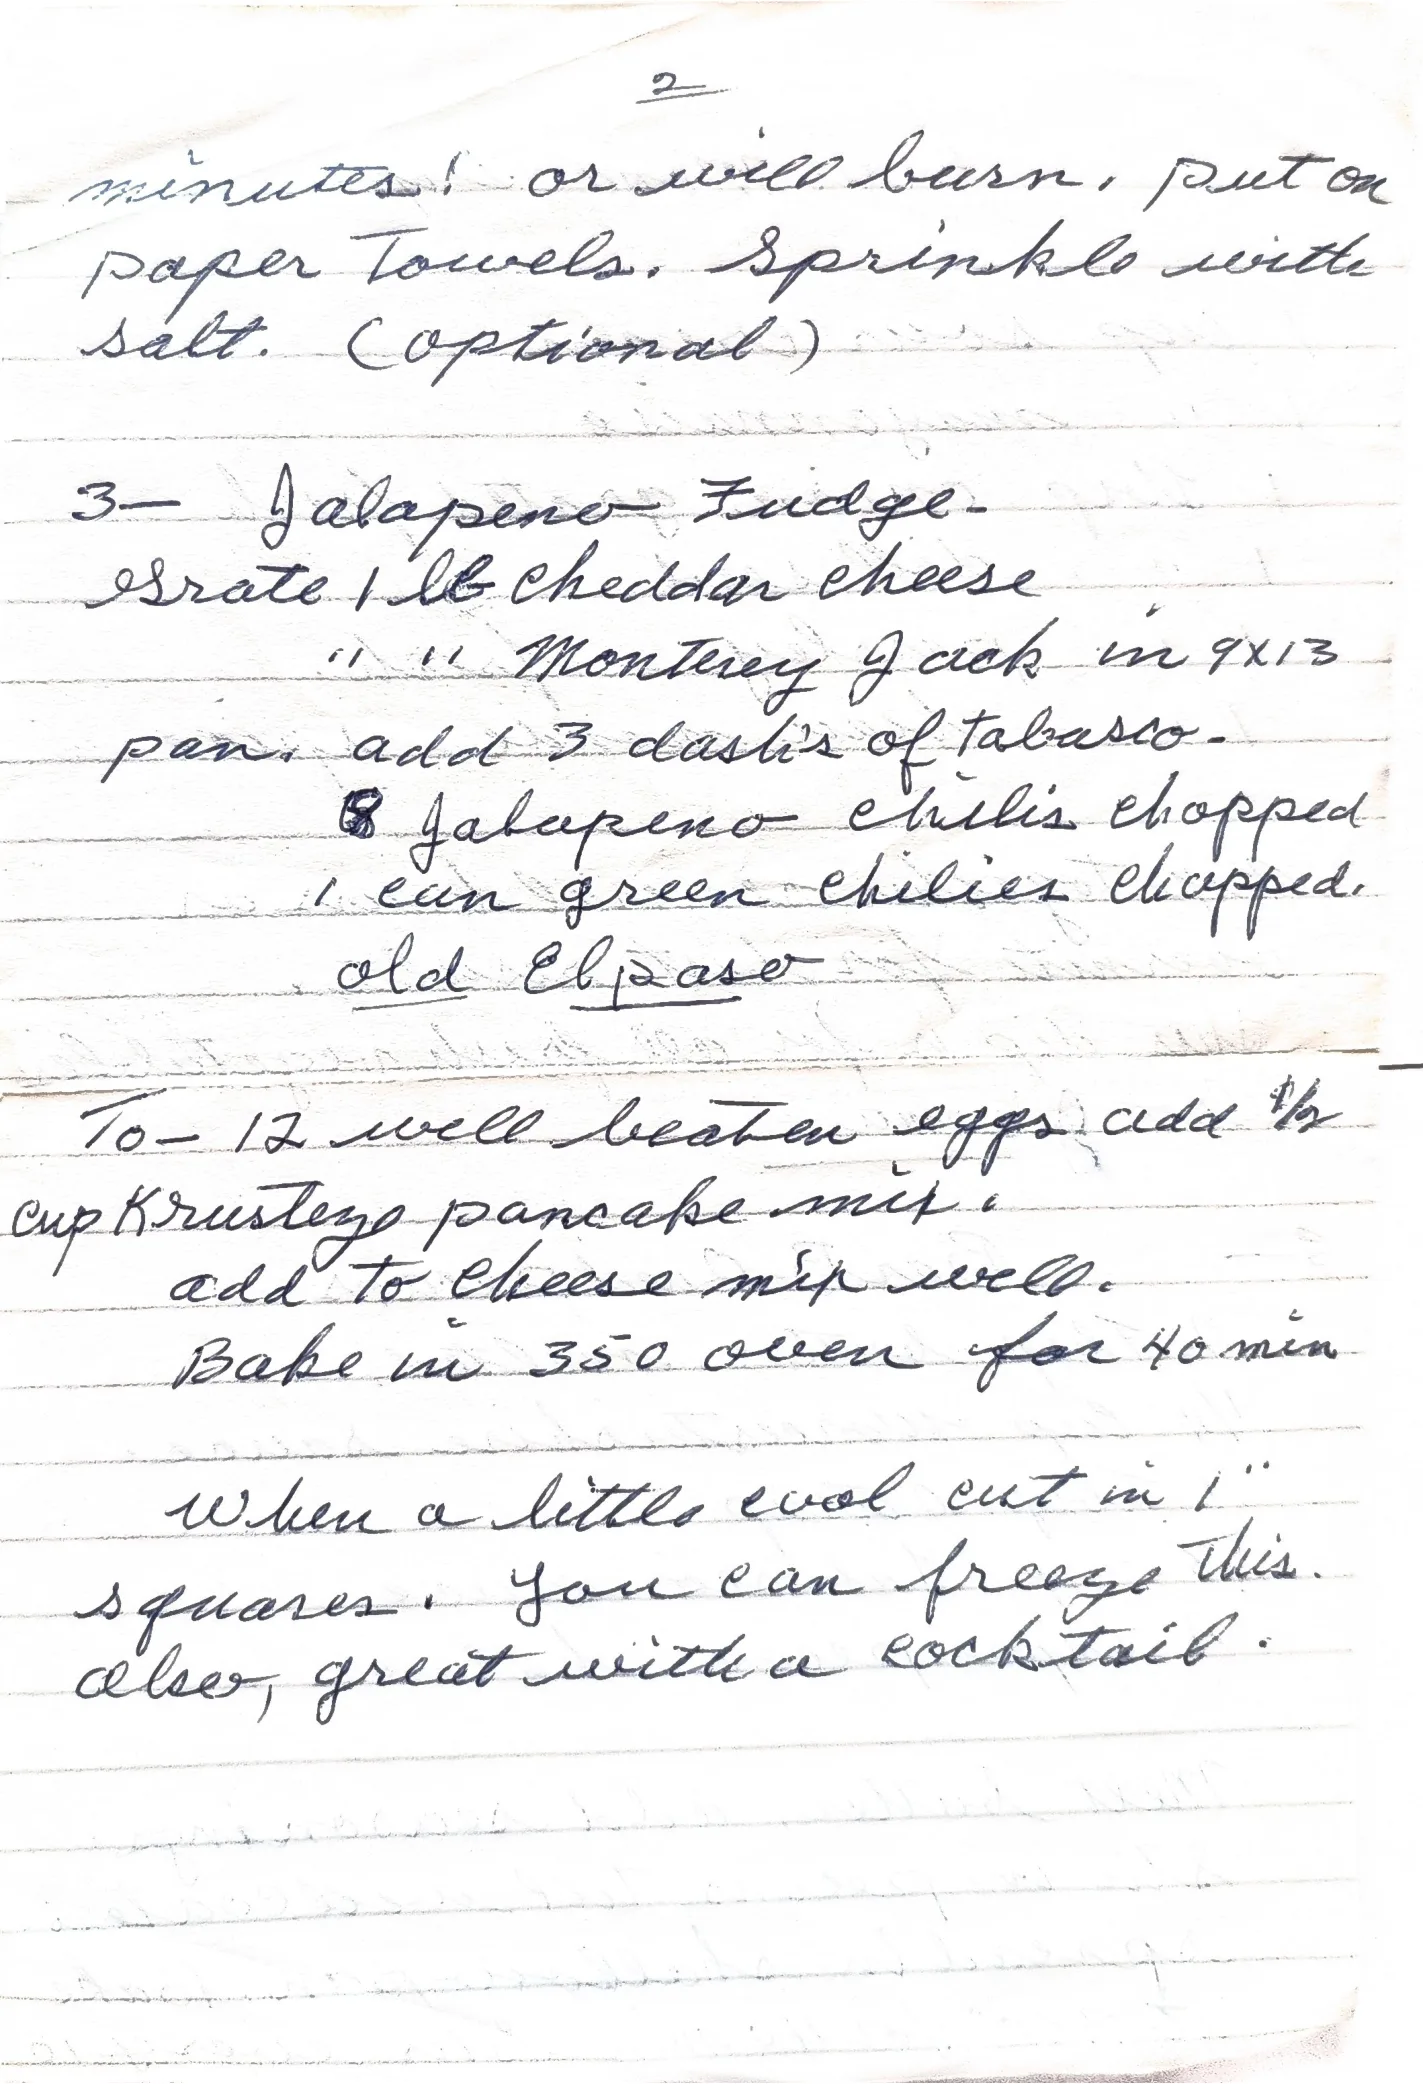 2
minutes! or will burn. put on
paper Towels. Sprinkle with
salt. (optional)
3— Jalapeno Fudge-
Grate 1 lb cheddar cheese
" " Monterey Jack in 9x13
pan. add 3 dash's of tabasco-
8 Jalapeno chilis chopped
1 can green chilies chopped.
old Elpaso
To— 12 well beaten eggs add 1/2
cup Krusteze pancake mix.
add to cheese mix well.
Bake in 350 oven for 40 min
When a little cool cut in 1"
squares. You can freeze this.
also, great with a cocktail.